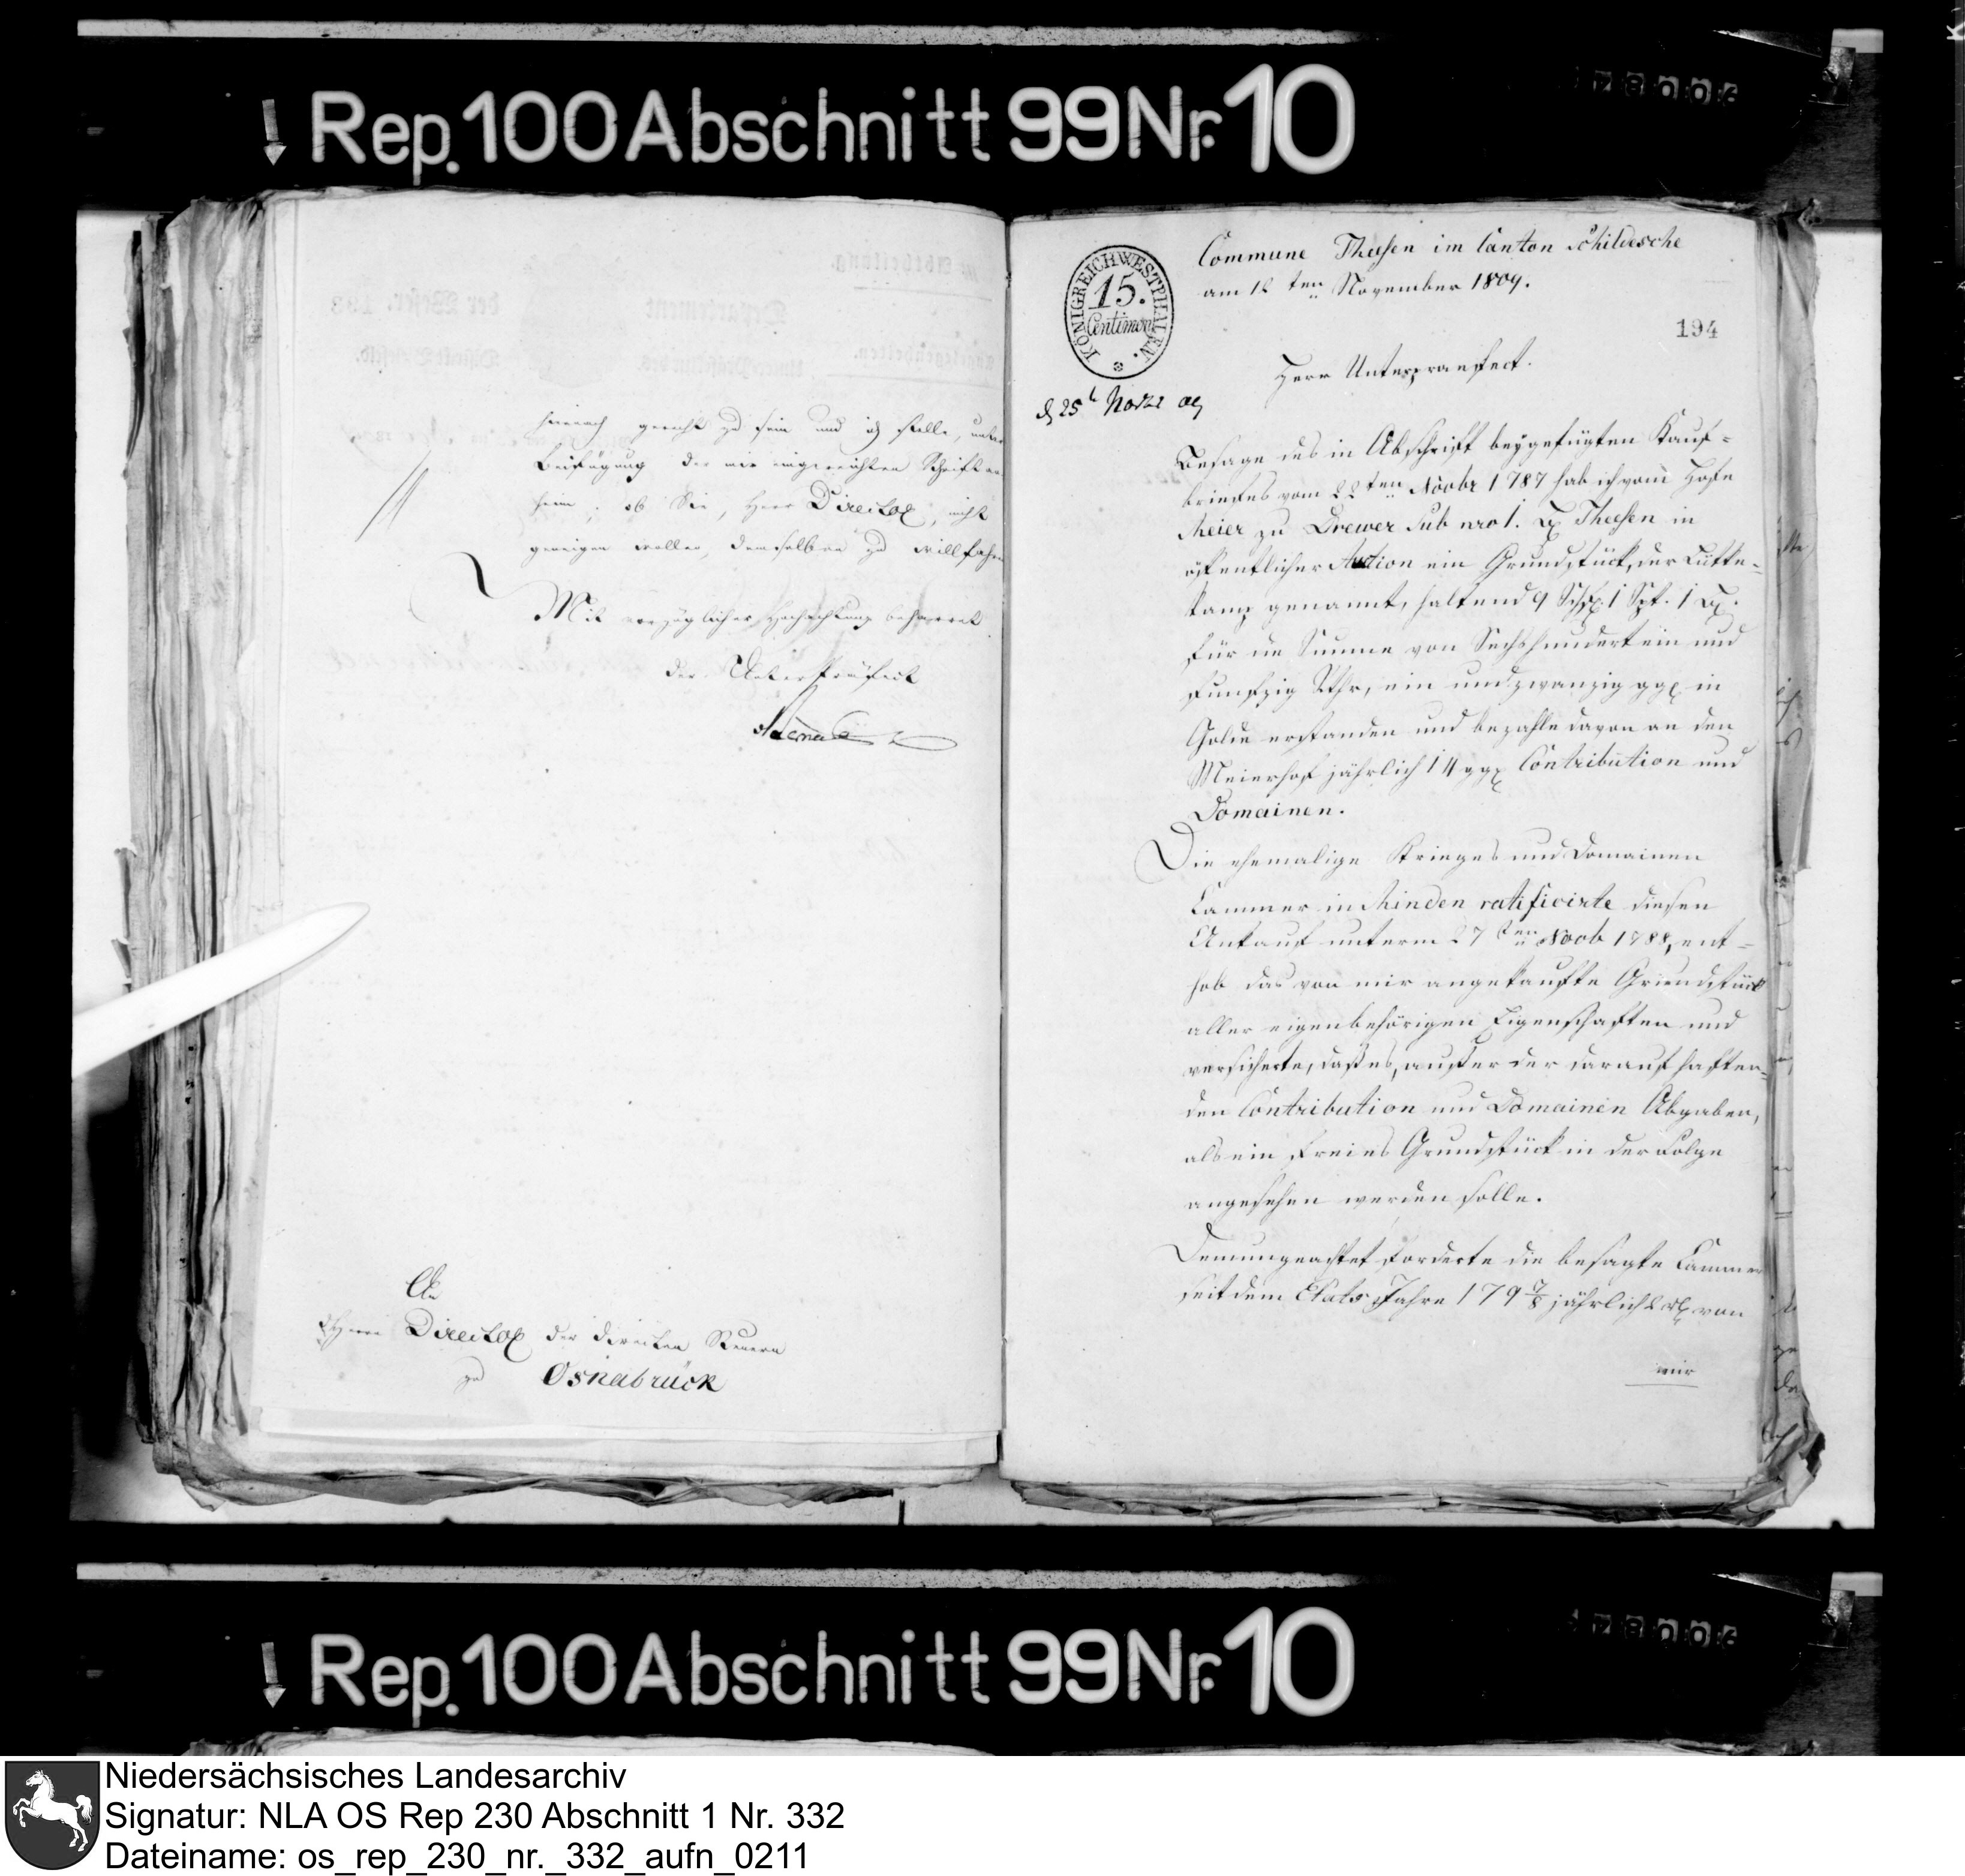 Rep. 100 Abschnitt 99 Nr. 10
hienach gerecht zu sein und ich stelle, unter
Beifügung der mir eingereichten Schriften
heim, ob Sie, Herr Director, nicht
geneigen wollen, demselben zu willfahren
Mit vorzüglicher Hochachtung beharret
der Unterpräfect
An
Herrn Director der directen Steuern
zu Osnabrück
KÖNIGREICH WESTPHALEN.
15.
Centimen
Commune Theesen im Canton Schildesche
am 12 ten November 1809.
194
Herr Unterpraefect.
Besage des in Abschrift beygefügten Kauf-
briefes vom 22ten Novbr 1787 hab ich vom Hofe
Meier zu Drewer sub nro 1. Theesen in
öffentlicher Auction ein Grundstück, der Lütke-
kamp genannt, haltend 9 Schfl. 1 Spt. 1
für die Summe von Sechshundert ein und
funfzig Rthr, ein und zwanzig ggr in
Golde erstanden und bezahle davon an den
Meierhof jährlich 14 ggr Contribution und
Domainen.
Die ehemalige Krieges und Domainen
Cammer in Minden ratificirte diesen
Ankauf unterm 27ten Novb 1788, ent-
hob das von mir angekaufte Grundstück
aller eigenbehörigen Eigenschaften und
versicherte, daß es, außer der darauf haften-
den Contribution und Domainen Abgaben,
als ein freies Grundstück in der Folge
angesehen werden solle.
Demungeachtet forderte die besagte Cammer
seit dem Etats Jahre 179 7/8 jährlich von
mir
Rep. 100 Abschnitt 99 Nr. 10
Niedersächsisches Landesarchiv
Signatur: NLA OS Rep 230 Abschnitt 1 Nr. 332
Dateiname: os_rep_230_nr._332_aufn_0211